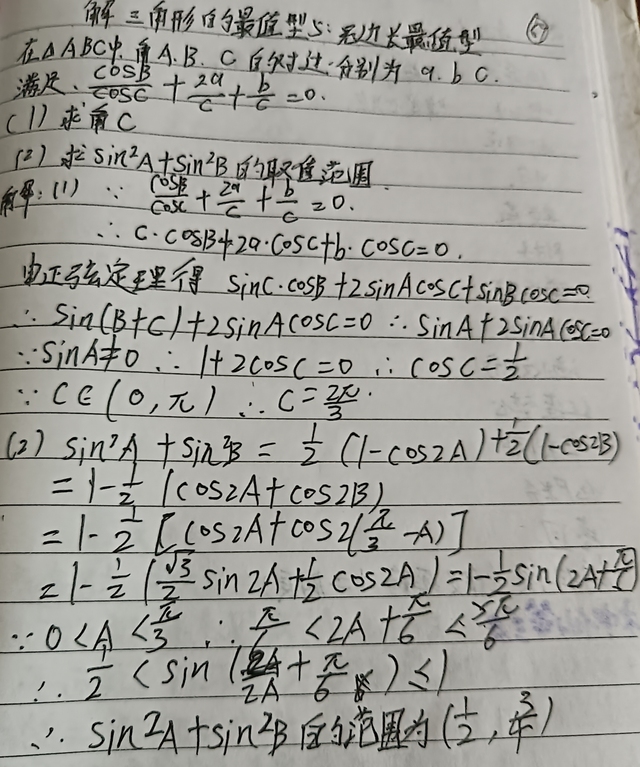 解三角形的最值型5：无边长最值型 ⑥
在△ABC中,角A.B.C的对边分别为a.b c.
满足. cosB/cosC + 2a/c + b/c = 0.
(1) 求角C
(2) 求sin²A+sin²B的取值范围.
解: (1) ∵ cosB/cosC + 2a/c + b/c = 0.
∴ c·cosB+2a·cosC+b·cosC=0.
由正弦定理得 sinC·cosB+2sinAcosC+sinBcosC=0.
∴ sin(B+C)+2sinAcosC=0 ∴ sinA+2sinAcosC=0
∵ sinA≠0 ∴ 1+2cosC=0 ∴ cosC=1/2
∵ C∈(0,π) ∴ C=2π/3.
(2) sin²A+sin²B = 1/2 (1-cos2A)+1/2(1-cos2B)
= 1-1/2 (cos2A+cos2B)
= 1-1/2 [cos2A+cos2(π/3-A)]
= 1-1/2 (√3/2 sin2A+1/2 cos2A)=1-1/2sin(2A+π/6)
∵ 0<A<π/3 ∴ π/6<2A+π/6<5π/6
∴ 1/2<sin(2A+π/6)≤1
∴ sin²A+sin²B的范围为(1/2, 3/4)